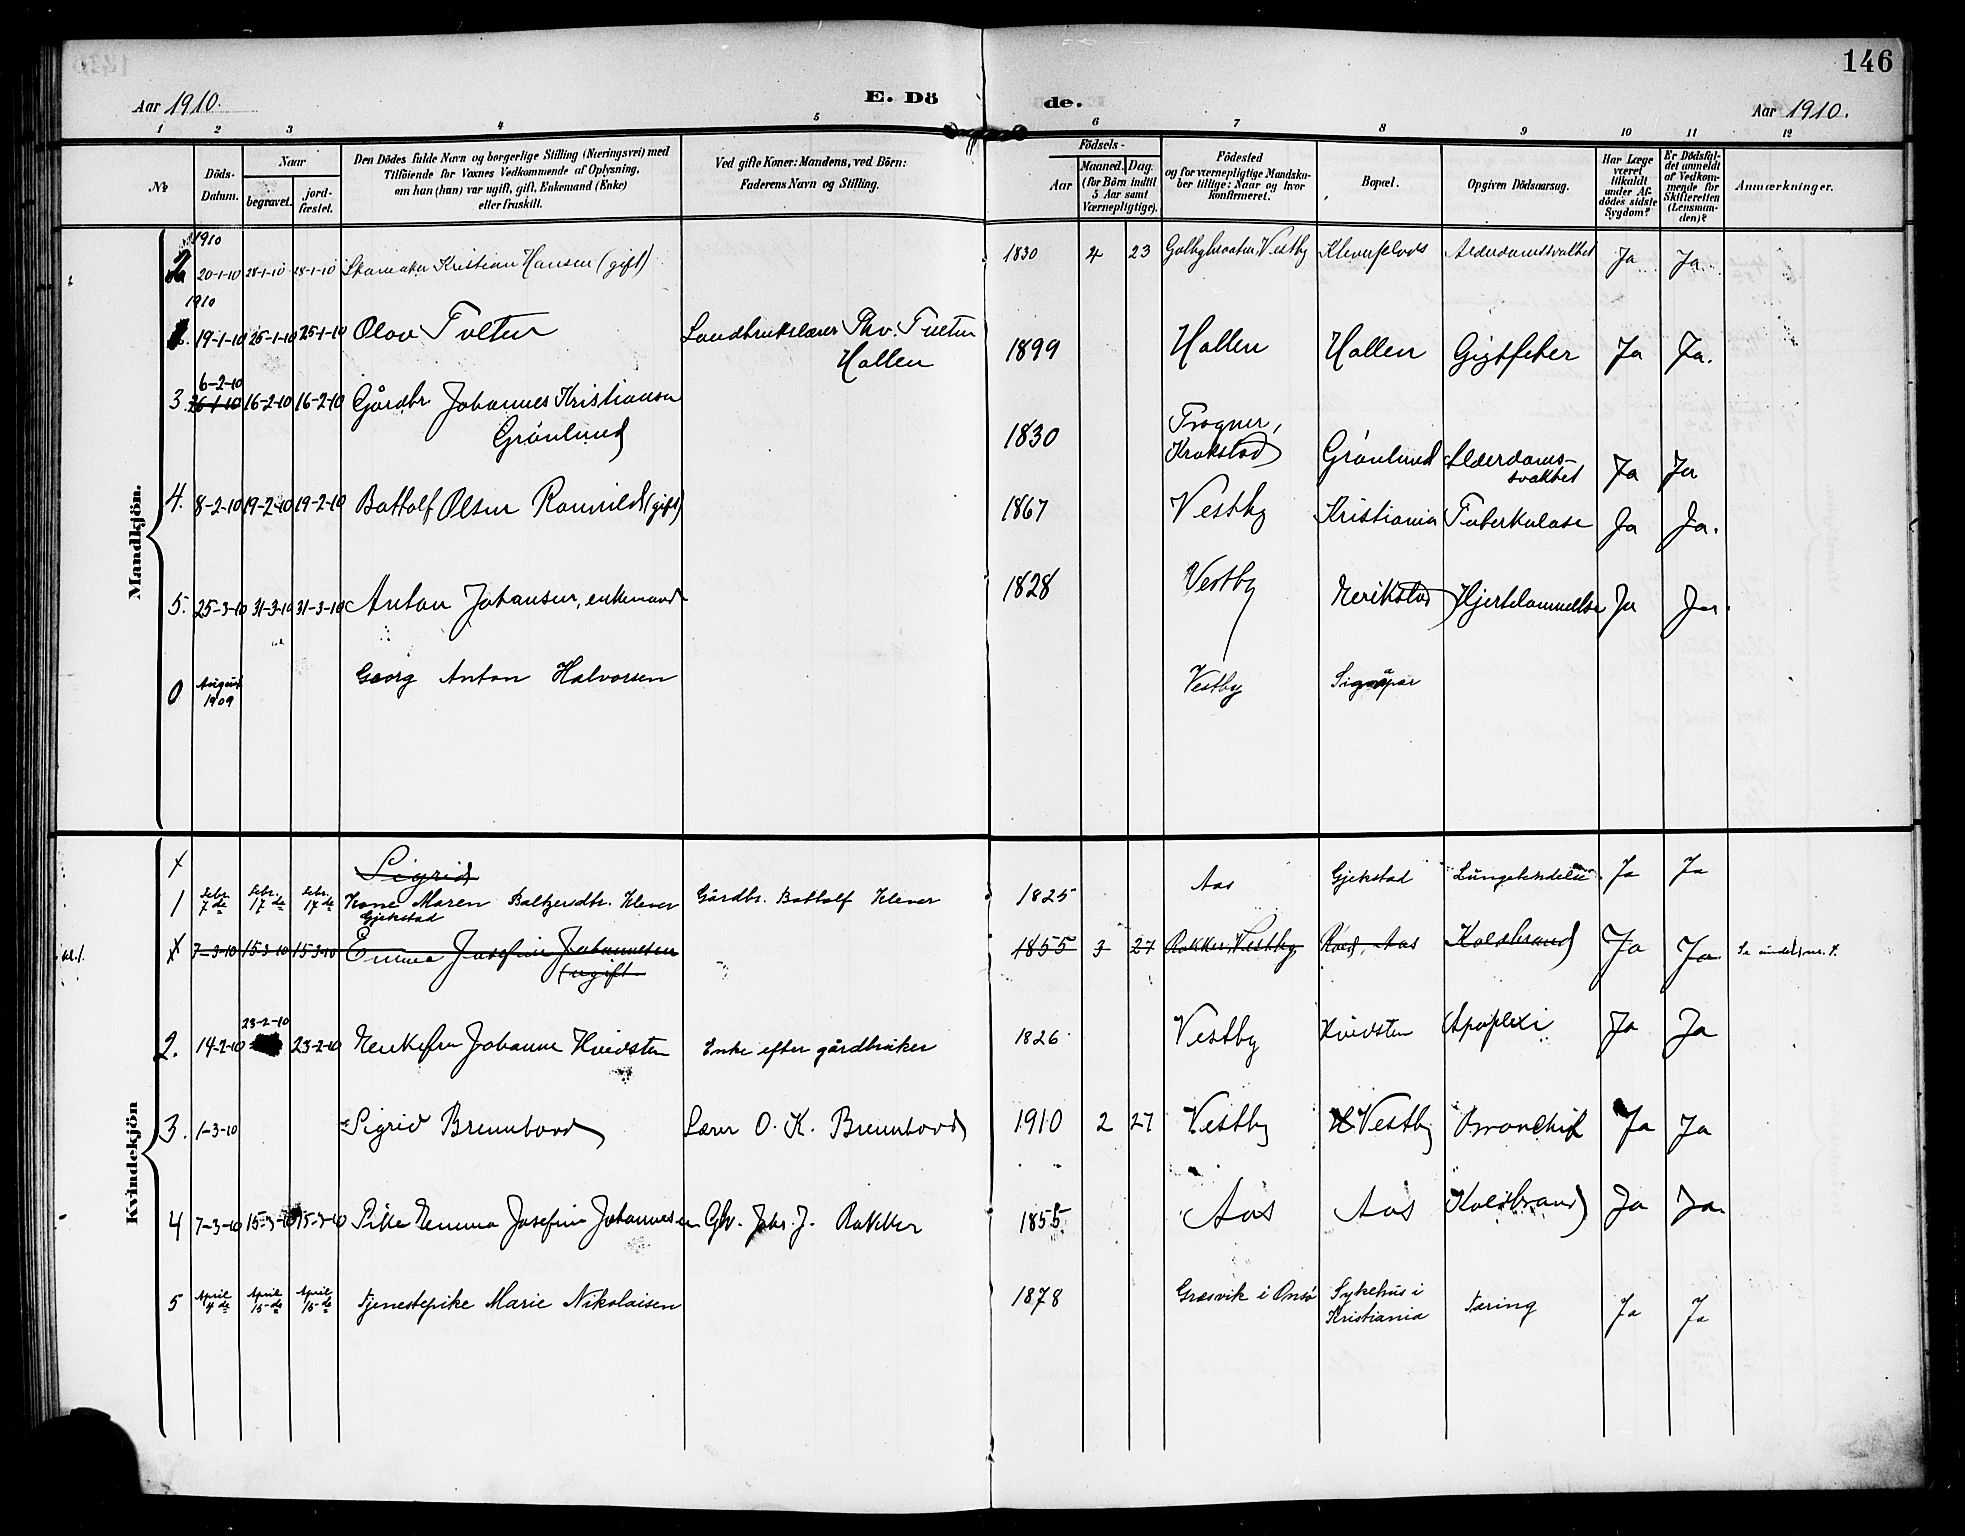 146
Aar 1910. E. Dö de. Aar 1910.
1 2 3 4 5 6 7 8 9 10 11 12
No
Döds-
Datum.
Naar
begravet.
jord-
fæstet.
Den Dödes fulde Navn og borgerlige Stilling (Næringsvei) med
Tilföiende for Voxnes Vedkommende af Oplysning,
om han (hun) var ugift, gift, Enkemand (Enke)
eller fraskilt.
Ved gifte Koner: Mandens, ved Börn:
Faderens Navn og Stilling.
Födsels-
Aar
Maaned. Dag.
(for Börn indtil
5 Aar samt
Værnepligtige).
Födested
og for værnepligtige Mandska-
ber tillige: Naar og hvor
konfirmeret.
Bopæl.
Opgiven Dödsaarsag.
Har Læge
været
tilkaldt
under Af-
dödes sidste
Sygdom?
Er Dödsfal-
det anmeldt
af Vedkom-
mende for
Skifteretten
(Lensman-
den)?
Anmærkninger.
Mandkjön.
1910
20-1-10 28-1-10 28-1-10 Skomaker Kristian Hansen (gift) 1830 4 23 Vestby Alderdomssvakhet Ja Ja
1910
19-1-10 25-1-10 25-1-10 Olav Tveten Landbrukslærer Thv. Tveten
Hallen
1899 Hallen Hallen Gigtfeber Ja Ja.
6-2-10
3. 26-1-10 16-2-10 16-2-10 Gårdbr. Johannes Kristiansen
Grönlund
1830 Frogner,
Krokstad Grönlund Alderdoms-
svakhet Ja Ja
4. 8-2-10 19-2-10 19-2-10 Bottolf Olsen Ramvild (gift) 1867 Vestby Kristiania Tuberkulose Ja Ja.
5. 25-3-10 31-3-10 31-3-10 Anton Johansen, enkemand 1828 Vestby Erikstad Hjertelammelse Ja Ja.
0 August
1909 Georg Anton Halvorsen Vestby
Kvindekjön
x Sigrid
1 Febr.
7de Febr.
17de Febr.
17de Kone Maren Baltzersdtr. Klever
Gjekstad Gårdbr. Bottolf Klever 1825 Aas Gjekstad Lungebetændelse Ja Ja
x 7-3-10 15-3-10 15-3-10 Emma Josefine Johannesen
(ugift
1855 3 27 Rakker, Vestby Aas Koldbrand Ja Ja. Se under nr. 4.
23-2-10
2. 14-2-10 23-2-10 Enkefru Johanne Kvidsten Enke efter gårdbruker 1826 Vestby Kvidsten Apoplexi Ja Ja
3. 1-3-10 Sigrid Brennbovd Lærer O. K. Brennbovd 1910 2 27 Vestby Vestby Bronchit Ja Ja
4 7-3-10 15-3-10 15-3-10 Pike Emma Josefine Johannesen Gbr. Johs. J. Rakker 1855 Aas Aas Koldbrand Ja Ja.
5 April
4de April
15-de April
15-de Tjenestepike Marie Nikolaisen 1878 Græsvik i Onsö Sykehus i
Kristiania Tæring Ja Ja